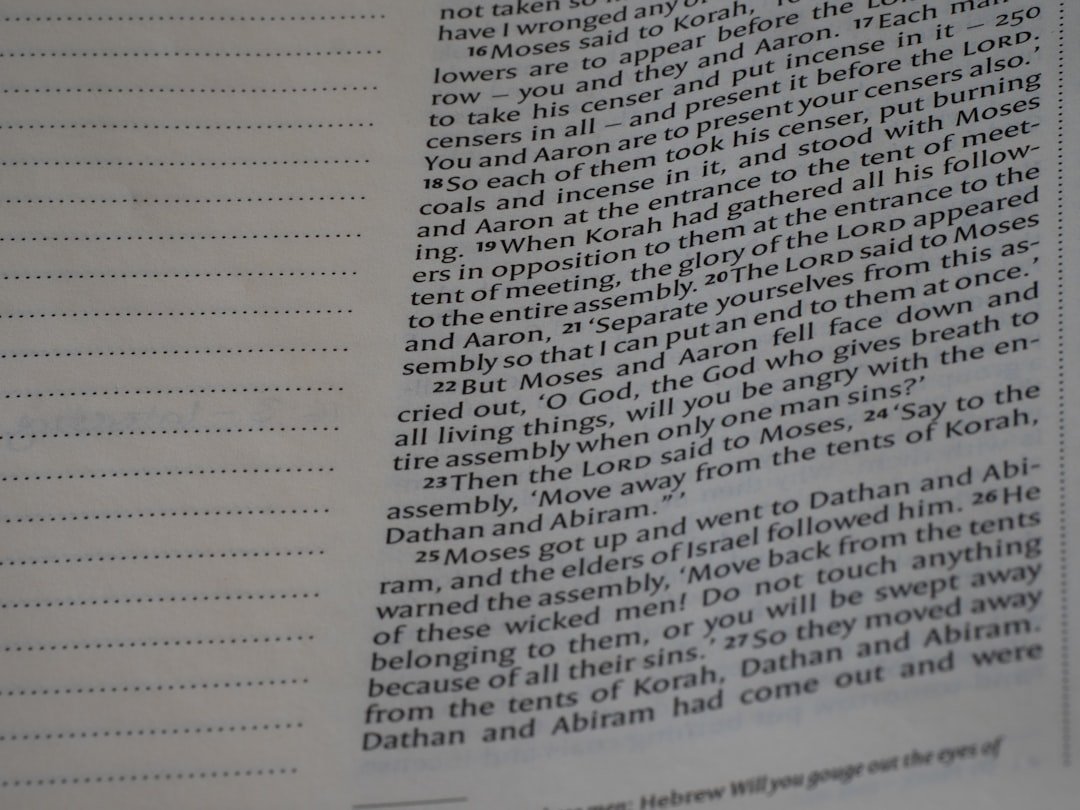 not taken so
have I wronged any of
16 Moses said to Korah,
lowers are to appear before the
row – you and they and Aaron. 17 Each man
to take his censer and put incense in it – 250
censers in all – and present it before the LORD.
You and Aaron are to present your censers also.’
18 So each of them took his censer, put burning
coals and incense in it, and stood with Moses
and Aaron at the entrance to the tent of meet-
ing. 19 When Korah had gathered all his follow-
ers in opposition to them at the entrance to the
tent of meeting, the glory of the LORD appeared
to the entire assembly. 20 The LORD said to Moses
and Aaron, 21 ‘Separate yourselves from this as-
sembly so that I can put an end to them at once.’
22 But Moses and Aaron fell face down and
cried out, ‘O God, the God who gives breath to
all living things, will you be angry with the en-
tire assembly when only one man sins?’
23 Then the LORD said to Moses, 24 ‘Say to the
assembly, “Move away from the tents of Korah,
Dathan and Abiram.”’
25 Moses got up and went to Dathan and Abi-
ram, and the elders of Israel followed him. 26 He
warned the assembly, ‘Move back from the tents
of these wicked men! Do not touch anything
belonging to them, or you will be swept away
because of all their sins.’ 27 So they moved away
from the tents of Korah, Dathan and Abiram.
Dathan and Abiram had come out and were
men; Hebrew Will you gouge out the eyes of